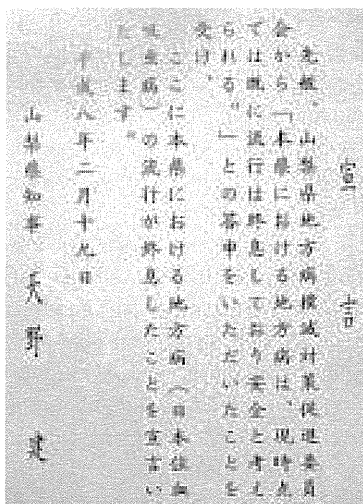 宣言
先般、山梨県地方病撲滅対策促進委員
会から「本県における地方病は、現時点
では既に流行は終息しており安全と考え
られる。」との答申をいただいたことを
受け、
ここに本県における地方病(日本住血
吸虫病)の流行が終息したことを宣言い
たします。
平成八年二月十九日
山梨県知事 天野 建